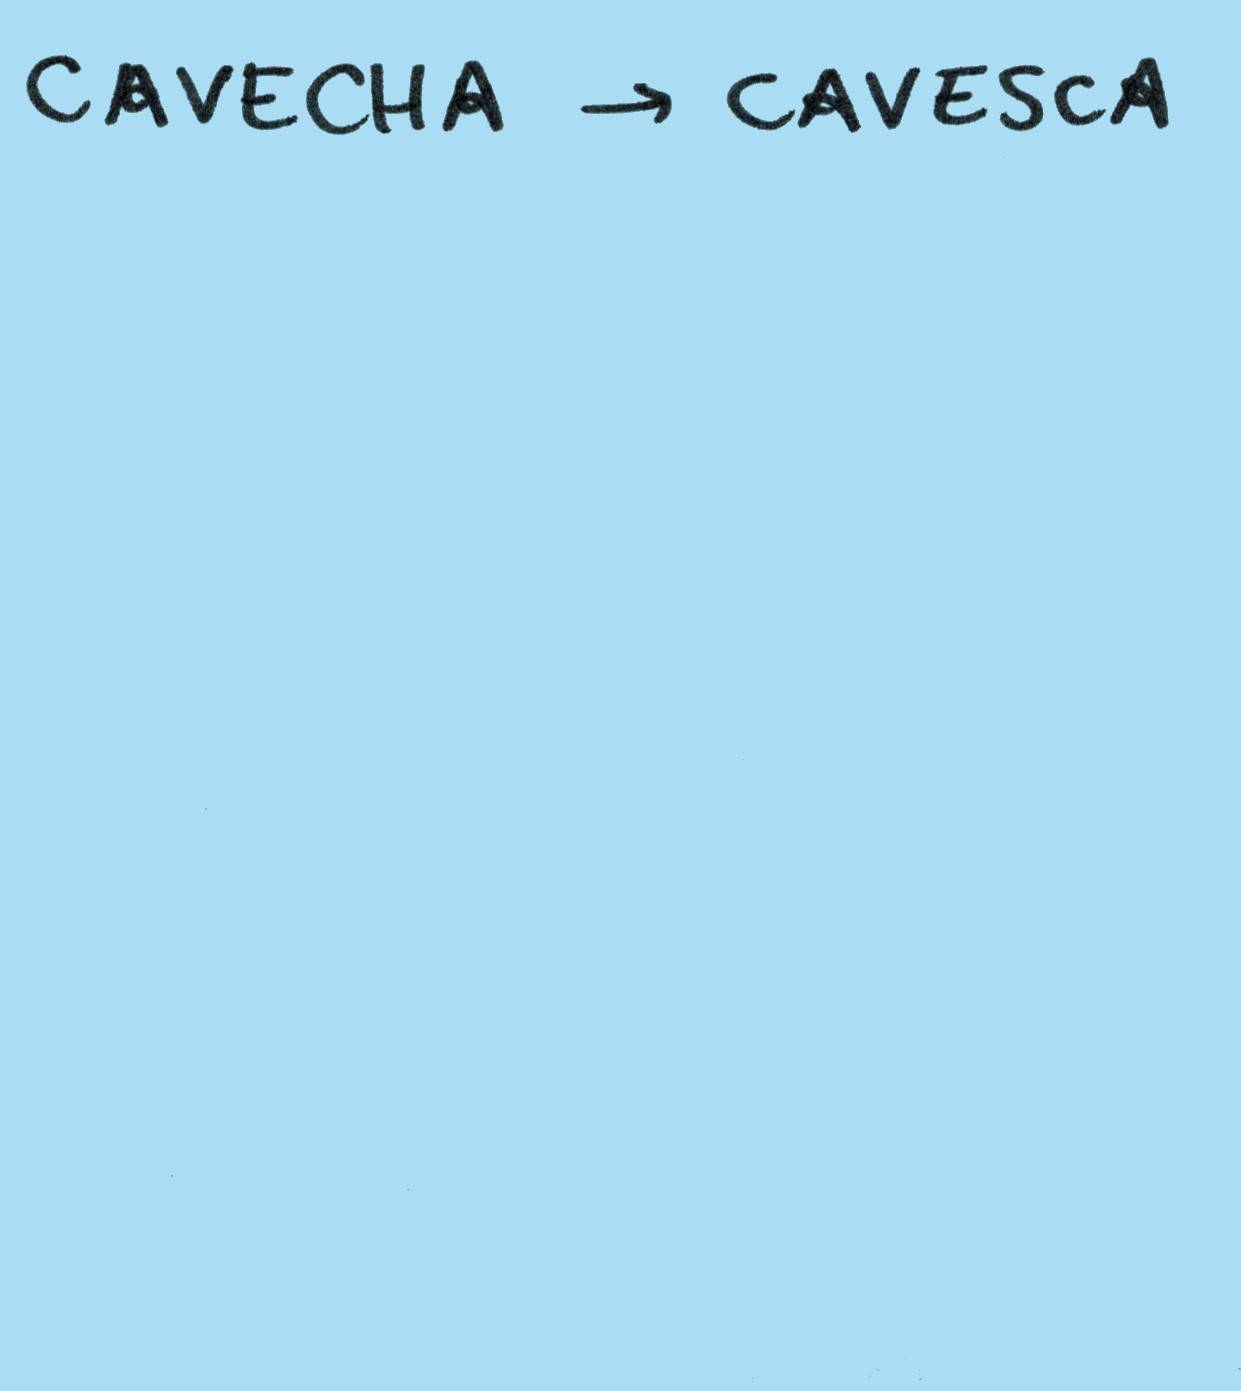 CAVECHA → CAVESCA